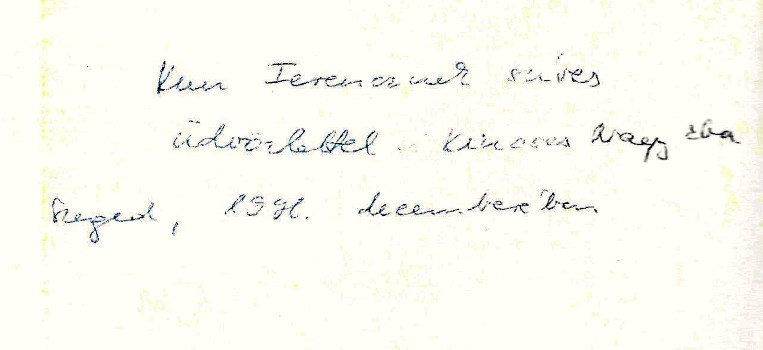 Kun Ferencnek szíves
üdvözlettel Kincses Nagy Éva
Szeged, 1991. decemberében